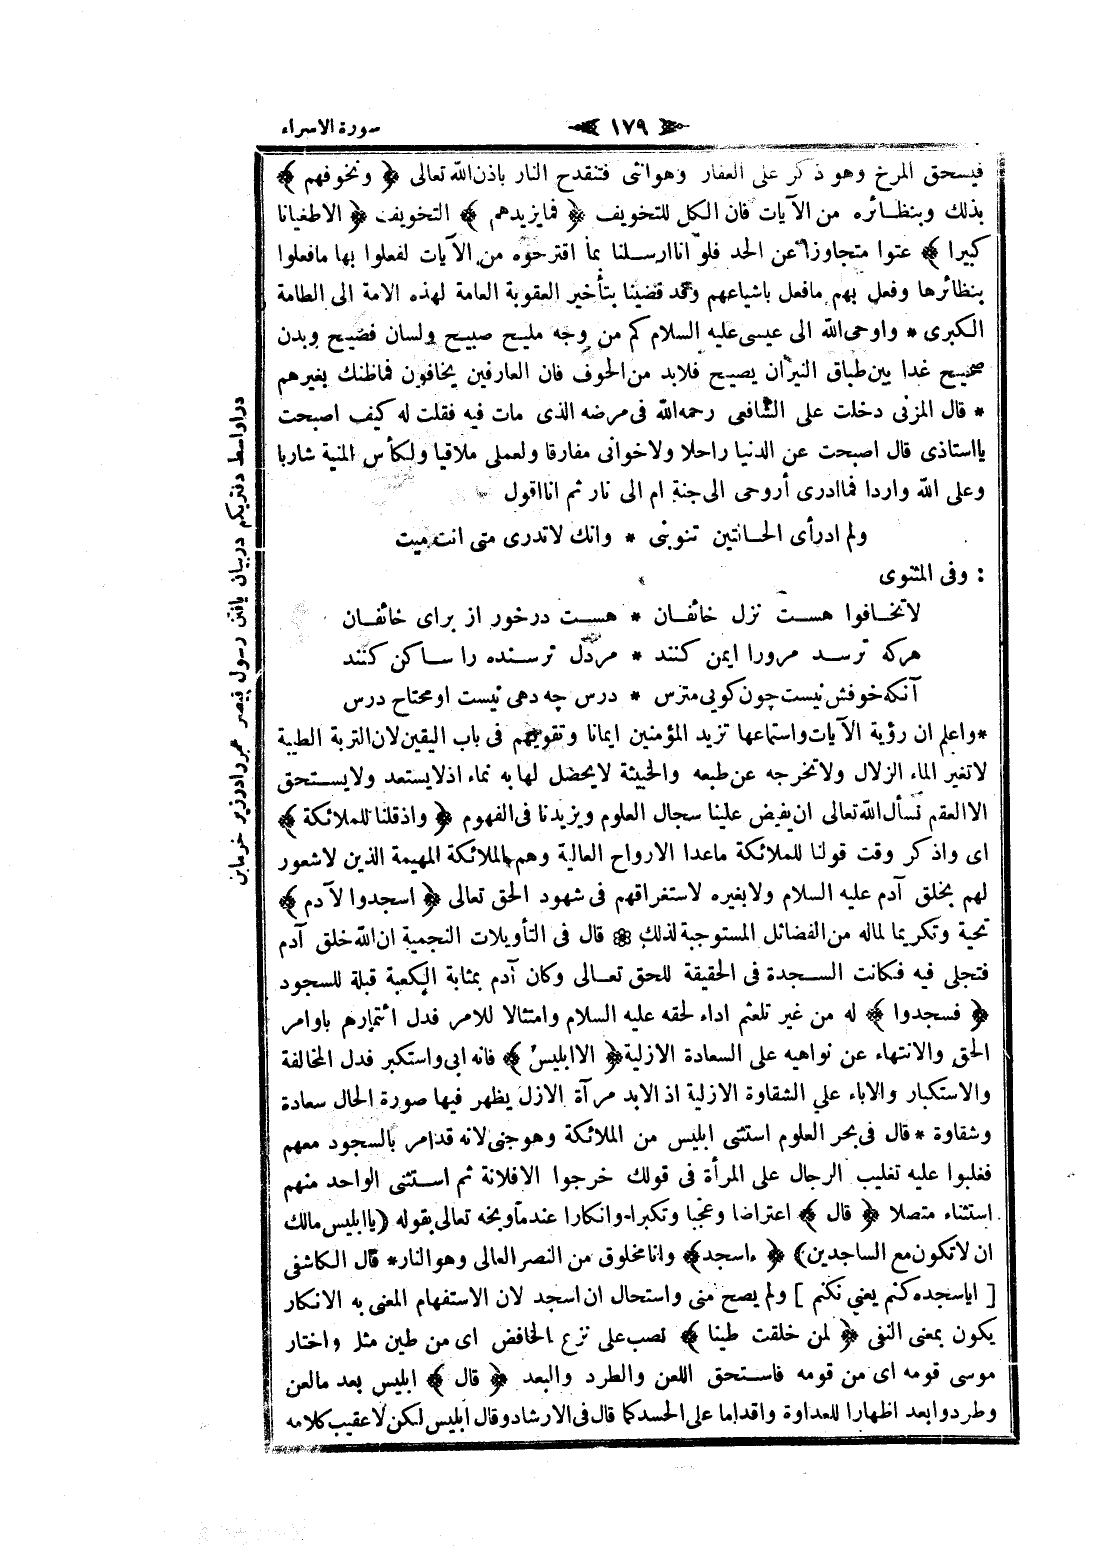 سورة الاسراء ﴿ ١٧٩ ﴾
فيسحق المرخ وهو ذكر على العفار وهوانثى فتنقدح النار باذن الله تعالى ﴿ ونخوفهم ﴾
بذلك وبنظائره من الآيات فان الكل للتخويف ﴿ فمايزيدهم ﴾ التخويف ﴿ الاطغيانا
كبيرا ﴾ عتوا متجاوزا عن الحد فلو اناارسلنا بما اقترحوه من الآيات لفعلوا بها مافعلوا
بنظائرها وفعل بهم مافعل باشياعهم وقد قضينا بتأخير العقوبة العامة لهذه الامة الى الطامة
الكبرى * واوحى الله الى عيسى عليه السلام كم من وجه مليح صبيح ولسان فصيح وبدن
صحيح غدا بين طباق النيران يصيح فلابد من الخوف فان العارفين يخافون فماظنك بغيرهم
* قال المزنى دخلت على الشافعى رحمه الله فى مرضه الذى مات فيه فقلت له كيف اصبحت
يااستاذى قال اصبحت عن الدنيا راحلا ولاخوانى مفارقا ولعملى ملاقيا ولكأس المنية شاربا
وعلى الله واردا فماادرى أروحى الى جنة ام الى نار ثم انااقول
ولم ادرأى الحالتين تنوبنى * وانك لاتدرى متى انت ميت
: وفى المثنوى
لاتخافوا هست نزل خائفان * هست درخور از براى خائفان
هركه ترسد مرورا ايمن كنند * مردل ترسنده را ساكن كنند
آنكه خوفش نيست چون كويى مترس * درس چه دهى نيست او محتاج درس
* واعلم ان رؤية الآيات واستماعها تزيد المؤمنين ايمانا وتقويهم فى باب اليقين لان التربة الطيبة
لاتغير الماء الزلال ولاتخرجه عن طبعه والخبيثة لايحصل لها به نماء اذلايستعد ولايستحق
الاالعقم نسأل الله تعالى ان يفيض علينا سجال العلوم ويزيدنا فى الفهوم ﴿ واذقلنا للملائكة ﴾
اى واذكر وقت قولنا للملائكة ماعدا الارواح العالية وهم الملائكة المهيمة الذين لاشعور
لهم بخلق آدم عليه السلام ولابغيره لاستغراقهم فى شهود الحق تعالى ﴿ اسجدوا لآدم ﴾
تحية وتكريما لماله من الفضائل المستوجبة لذلك ۞ قال فى التأويلات النجمية ان الله خلق آدم
فتجلى فيه فكانت السجدة فى الحقيقة للحق تعالى وكان آدم بمثابة الكعبة قبلة للسجود
﴿ فسجدوا ﴾ له من غير تلعثم اداء لحقه عليه السلام وامتثالا للامر فدل ائتمارهم باوامر
الحق والانتهاء عن نواهيه على السعادة الازلية ﴿ الاابليس ﴾ فانه ابى واستكبر فدل المخالفة
والاستكبار والاباء على الشقاوة الازلية اذ الابد مرآة الازل يظهر فيها صورة الحال سعادة
وشقاوة * قال فى بحر العلوم استثنى ابليس من الملائكة وهو جنى لانه قدامر بالسجود معهم
فغلبوا عليه تغليب الرجال على المرأة فى قولك خرجوا الافلانة ثم استثنى الواحد منهم
استثناء متصلا ﴿ قال ﴾ اعتراضا وعجبا وتكبرا وانكارا عندماوبخه تعالى بقوله (ياابليس مالك
ان لاتكون مع الساجدين) ﴿ ءاسجد ﴾ وانا مخلوق من النصر العالى وهو النار * قال الكاشفى
[ اياسجده كنم يعنى نكنم ] ولم يصح منى واستحال ان اسجد لان الاستفهام المعنى به الانكار
يكون بمعنى النفى ﴿ لمن خلقت طينا ﴾ نصب على نزع الخافض اى من طين مثل واختار
موسى قومه اى من قومه فاستحق اللعن والطرد والبعد ﴿ قال ﴾ ابليس بعد مالعن
وطرد وابعد اظهارا للعداوة واقداما على الحسد كما قال فى الارشاد وقال ابليس لكن لاعقيب كلامه
در اواسط دفتر يكم در بيان يافتن رسول قيصر عمر را در زير خرمابن